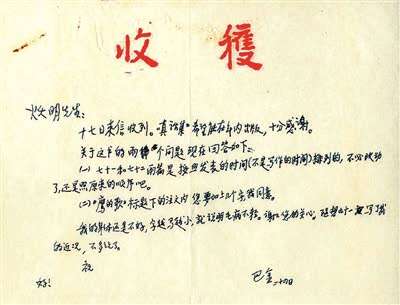 收穫
炎明先生：
十七日来信收到。《真话集》希望能在年内出版，十分感谢。
关于这书的两个问题现在回答如下：
(一) 七十一和七十二两篇是按照发表的时间(不是写作的时间)排列的，不必改动
了，还是照原来的顺序吧。
(二)《鹰的歌》标题下的注文内 您要加上几个字我同意。
我的身体还是不好，字越写越小，就说明毛病不轻。谢谢您的关心。
的近况，不多写了。
祝
好！
巴金 二十四日